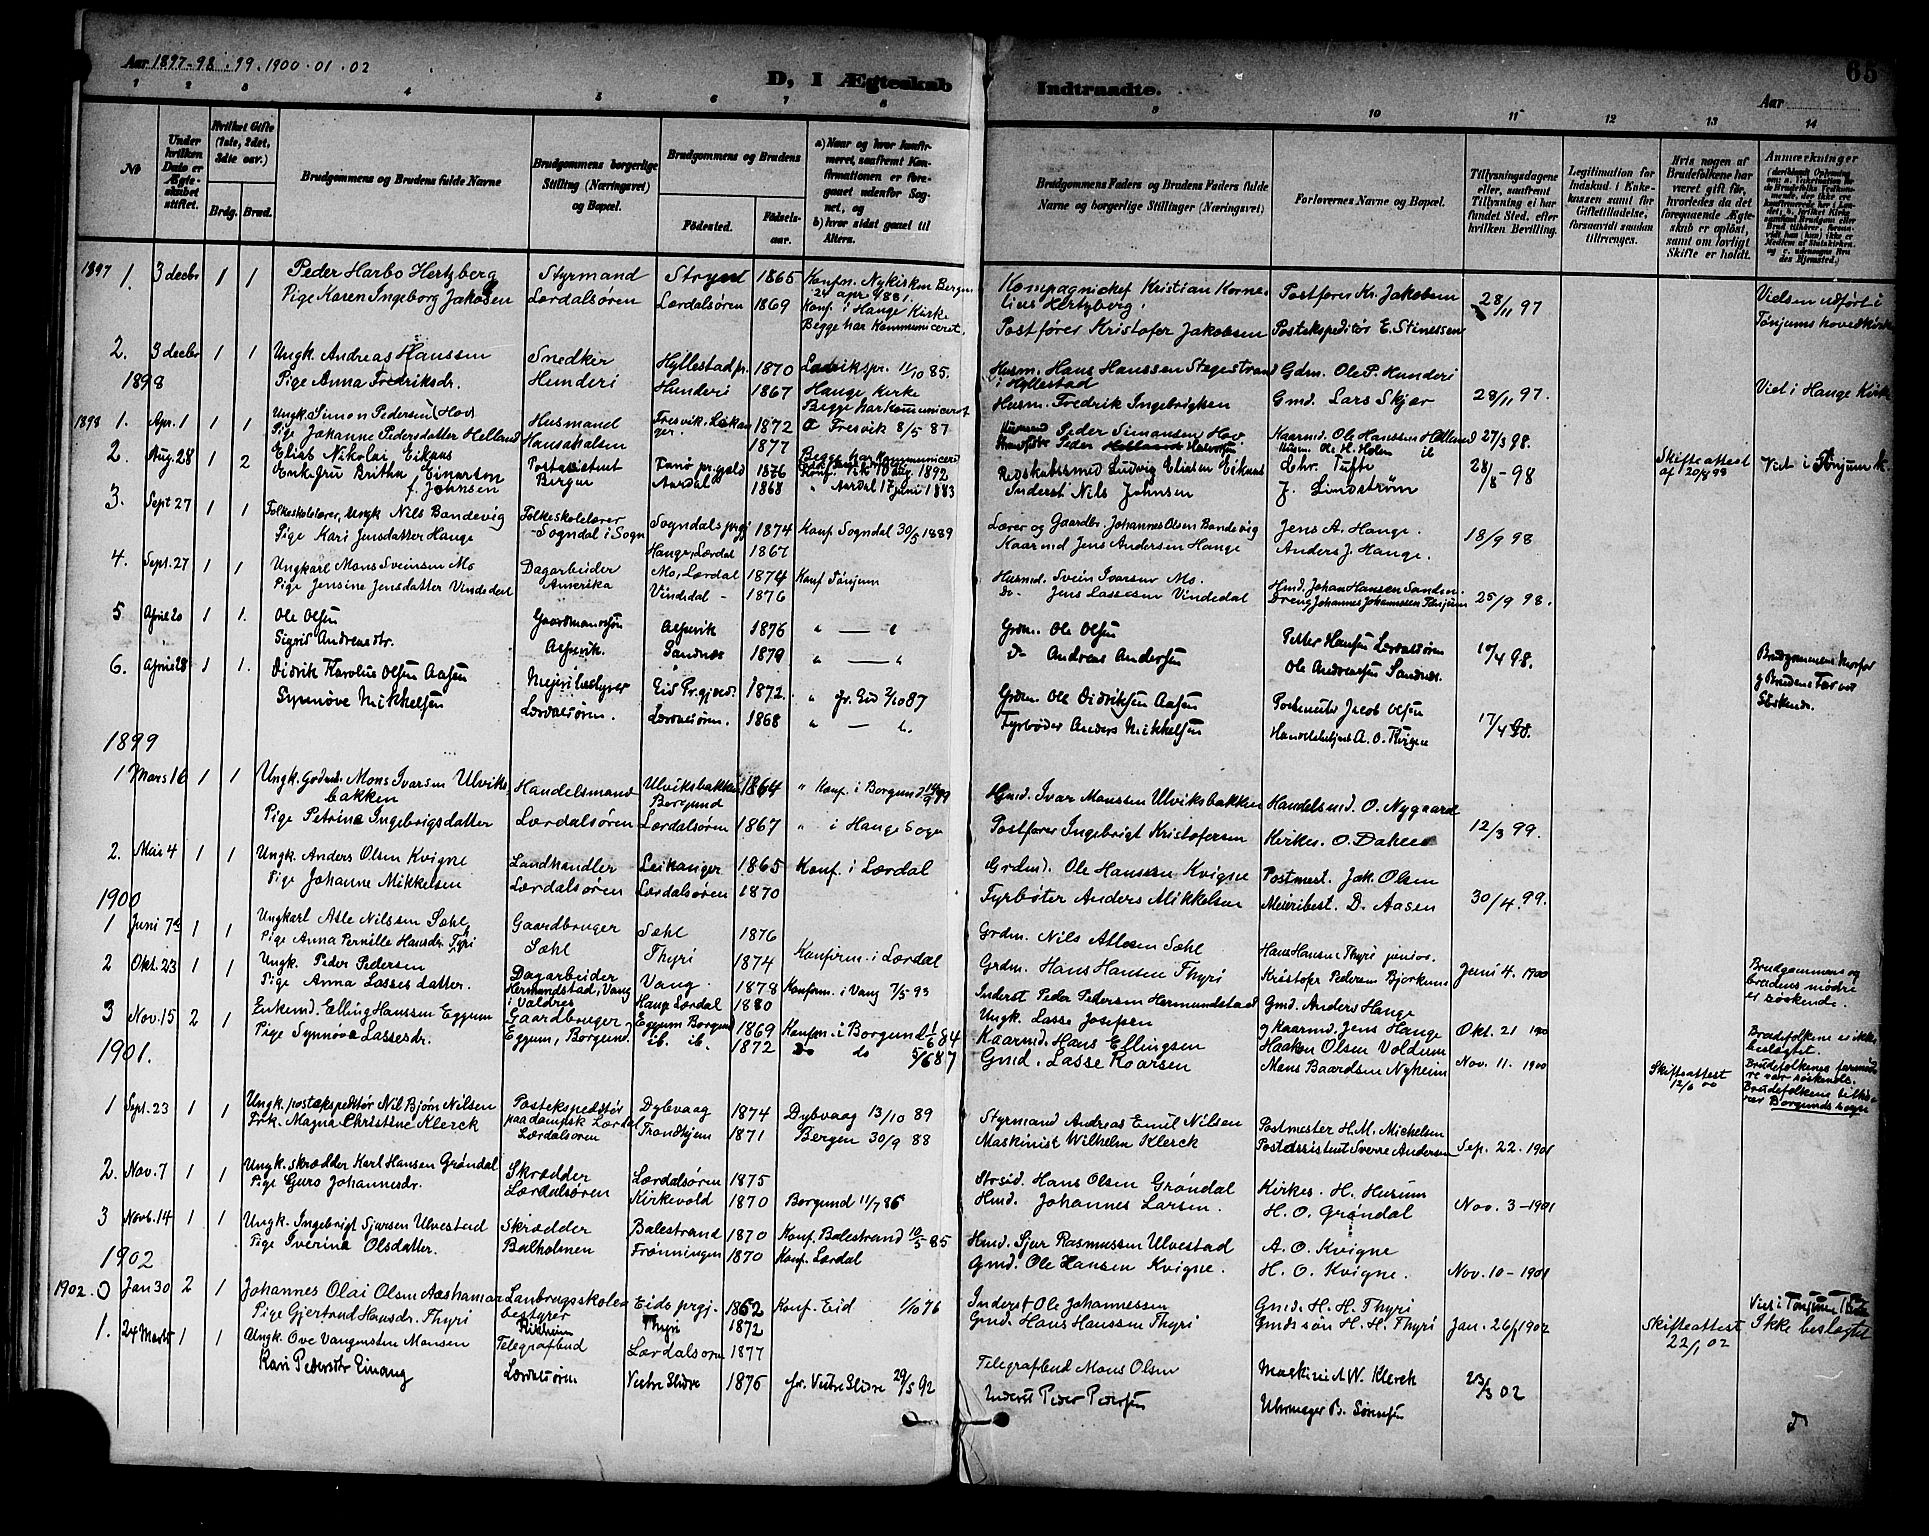 Aar 1897-98.99.1900.01.02
D, I Ægteskab
Indtraadte.
65
Aar
1 2 3 4 5 6 7 8 9 10 11 12 13 14
No
Under hvilken Dato er Ægteskabet stiftet.
Hvilket Gifte (1ste, 2det, 3die osv.)
Brdg. Brud.
Brudgommens og Brudens fulde Navne
Brudgommens borgerlige Stilling (Næringsvei) og Bopæl.
Brudgommens og Brudens
Fødested. Fødselsaar.
a) Naar og hvor konfirmeret, saafremt Konfirmationen er foregaaet udenfor Sognet, og
b) hvor sidst gaaet til Alters.
Brudgommens Faders og Brudens Faders fulde Navne og borgerlige Stillinger (Næringsvei)
Forlovernes Navne og Bopæl.
Tillysningsdagene eller, saafremt Tillysning ei har fundet Sted, efter hvilken Bevilling.
Legitimation for Indskud i Enkekassen samt for Giftetilladelse, forsaavidt saadan tiltrænges.
Hvis nogen af Brudefolkene har været gift før, hvorledes da det foregaaende Ægteskab er opløst, samt om lovligt Skifte er holdt.
Anmærkninger
1897 1. 3 decbr 1 1 Peder Harbo Hertzberg Styrmand Stryn 1865 Konfm. Nykirken Bergen 24 apr 1881. Kompagnichef Kristian Kornelius Hertzberg. Postfører Kr. Jakobsen 28/11 97 Vielsen udført i
Pige Karen Ingeborg Jakobsen Lærdalsøren Lærdalsøren 1869 Konf. i Hauge Kirke Begge har Kommuniceret. Postfører Kristofer Jakobsen Postekspeditør E. Stinessen Tønjums hovedkirke
2. 3 decbr 1 1 Ungk. Andreas Hanssen Snedker Hyllestad pr. 1870 Ladvikspr. 11/10 85. Husm. Hans Hanssen Stegestrand i Hyllestad Gdm. Ole P. Hunderi
Pige Anna Fredriksdr. Hunderi Hunderi 1867 Hauge Kirke Begge har kommuniceret Husm. Fredrik Ingebrigtsen Gmd. Lars Skjær 28/11 97. Viet i Hauge Kirke
1898
1898 1. Apr. 1 1 1 Ungk. Simon Pedersen (Hov) Husmand Fresvik, Leikanger. 1872 Fresvik 8/5 87 Husmand Peder Simonsen Hov Kaarmd. Ole Hanssen Helland 27/3 98.
Pige Johanne Pedersdatter Helland 1877 Begge har kommuniceret Peder Husm. Ole H. Holen ib
2. Aug. 28 1 2 Elias Nikolai Eiknes Postassistent Fanø pr.gjeld 1876 1892 Redskabssmed Ludvig Eliesen Eiknes Chr. Tufte 28/8 - 98 Skifteattest af 20/8 98 Viet i Tønjum K.
Enkefru Britha Einarson f. Johnsen Bergen Aardal 1868 " Aardal 17 juni 1883 Inderst Nils Johnsen J. Lindstrøm
3. Sept 27 1 1 Folkeskolelærer, Ungk Nils Bondevig Folkeskolelærer Sogndal i Sogn Sogndals prgj 1874 Konf Sogndal 30/5 1889 Lærer og Gaardbr. Johannes Olsen Bondevig Jens A. Hauge. 18/9 98
Pige Kari Jensdatter Hauge Hauge, Lærdal 1867 Kaarmd Jens Andersen Hauge Anders J. Hauge.
4. Sept. 27 1 1 Ungkarl Mons Sveinsen Mo Dagarbeider Mo, Lærdal 1874 Konf Tønjum Husmd. Svein Ivarsen Mo. Hmd. Johan Hansen Sanden.
Pige Jensine Jensdatter Vindedal Amerika Vindedal - 1876 Do- Jens Lassesen Vindedal Dreng Johannes Johannessen Tønjum 25/9 98.
5 April 20 1 1. Ole Olsen Gaardmandssøn Aspevik 1876 " — " Grdm. Ole Olsen Petter Hansen Lærdalsøren 17/4 98.
Sigrid Andreasdtr. Aspevik. Sandnes 1879 " — " do Andreas Andersen Ole Andreassen Sandnes.
6. April 28 1 1. Didrik Karolus Olsen Aasen Meieribestyrer Eid Pr.gjeld. 1872. " fr. Eid 2/10 87 Grdm. Ole Didriksen Aasen Postmester Jacob Olsen 17/4 98. Brudgommens Morfar og Brudens Far var Søskende.
Synnøve Mikkelsen Lærdalsøren. Lærdalsøren. 1868 " — ". Fyrbøder Anders Mikkelsen Handelsbetjent A. O. Kvigne
1899
1 Mars 16 1 1 Ungk. Godmd. Mons Ivarsen Ulviksbakken Handelsmand Ulviksbakken Borgund 1864 " Konf. i Borgund Gmd. Ivar Monssen Ulviksbakken Handelsmd. O. Nygaard
Pige Petrine Ingebrigsdatter Lærdalsøren Lærdalsøren 1867 " i Hauge Sogn Postfører Ingebrigt Kristofersen Kirkes. O. Dahl 12/3 99.
2. Mai 4 1 1 Ungk. Anders Olsen Kvigne Landhandler Leikanger 1865 Konf. i Lærdal Grdmd. Ole Hanssen Kvigne Postmest. Jak. Olsen
Pige Johanne Mikkelsen Lærdalsøren Lærdalsøren 1870 Fyrbøter Anders Mikkelsen Meieribest. D. Aasen 30/4. 99.
1900
1 Juni 7de 1 1 Ungkarl Atle Nilssen Sæhl Gaardbruger Sæhl 1876 Grdm. Nils Atlesen Sæhl Hans Hansen Thyri junior.
Pige Anna Pernille Hansdr. Tyri Sæhl Thyri 1874 Konfirm. i Lærdal Grdm. Hans Hansen Thyri Kristofer Pedersen Bjørkum Juni 4. 1900 Brudgommens og brudens mødre er søskende.
2 Okt. 23 1 1 Ungk. Peder Pedersen Dagarbeider Hermundstad, Vang i Valdres Vang. 1878 Konfirm. i Vang 7/5 93 Inderst Peder Pedersen Hermundstad Gmd. Anders Hauge
Pige Anna Lassesdatter. Haug Lærdal 1880 Ungk. Lasse Josefsen og Kaarmd. Jens Hauge Okt. 21 1900 Brudefolkene er ikke beslægtet.
3 Nov. 15 2 1 Enkemd. Elling Hanssen Eggum Gaardbruger Eggum Borgund 1869 Konfm. i Borgund 1/6 84 Kaarmd. Hans Ellingsen Haaken Olsen Voldum
Pige Synnøve Lassesdr. Eggum, Borgund. ib. ib. 1872 Do do 5/6 87 Gmd. Lasse Roarsen Mons Baardsen Nyheim Nov. 11. 1900 Skifteattest 12/6 00 Brudefolkenes farmødre var søskende. Brudefolkene tilhører Borgunds sogn
1901.
1 Sept. 23 1 1 Ungk. postekspeditør Nil Bjørn Nilsen Postekspeditør paa dampsk Lærdal Dybvaag 1874 Dybvaag 13/10 89 Styrmand Andreas Emil Nilsen Postmester H. M. Michelsen
Frk. Magna Christine Klerck Lærdalsøren Trondhjem 1871 Bergen 30/9 88 Maskinist Wilhelm Klerck Postassistent Sverre Andersen Sep. 22. 1901
2. Nov. 7 1 1 Ungk. skrædder Karl Hansen Grøndal Skrædder Lærdalsøren 1875 Strsid. Hans Olsen Grøndal Kirkes. H. Husum
Pige Guro Johannesdr. Lærdalsøren Kirkevold 1870 Borgund 11/7 86 Hmd. Johannes Larsen. H. O. Grøndal Nov. 3 - 1901
3 Novb. 14 1 1 Ungk. Ingebrigt Sjursen Ulvestad Skrædder Balestrand 1870 Konf. Balestrand 10/5 85 Hmd. Sjur Rasmussen Ulvestad A. O. Kvigne
Pige Iverine Olsdatter. Balholmen Frønningen 1870 Konf. Lærdal Gmd. Ole Hansen Kvigne. H. O. Kvigne. Nov. 10 - 1901
1902
1902. 0 Jan 30 2 1 Johannes Olai Olsen Aashamar Lanbrugsskolebestyrer Eids prgj. 1862 Konf. Eid 1/10 76 Inderst Ole Johannessen Gmd. H. H. Thyri Viet i Tønjum
Pige Gjertrud Hansdr. Thyri Rikheim Thyri 1872 Gmd. Hans Hanssen Thyri Gmds søn H. H. Thyri Jan. 26/1 1902 Skifteattest 22/1 02 Ikke beslægtet
1. 24 Marts 1 1 Ungk. Ove Vangensten Monsen Telegrafbud Lærdalsøren 1877 Telegrafbud Mons Olsen Maskinist W. Klerck 23/3 02
Kari Pedersdtr Einang Lærdalsøren Vestre Slidre 1876 fr. Vestre Slidre 29/5 92 Inderst Peder Pedersen Uhrmager B. Sønnesen